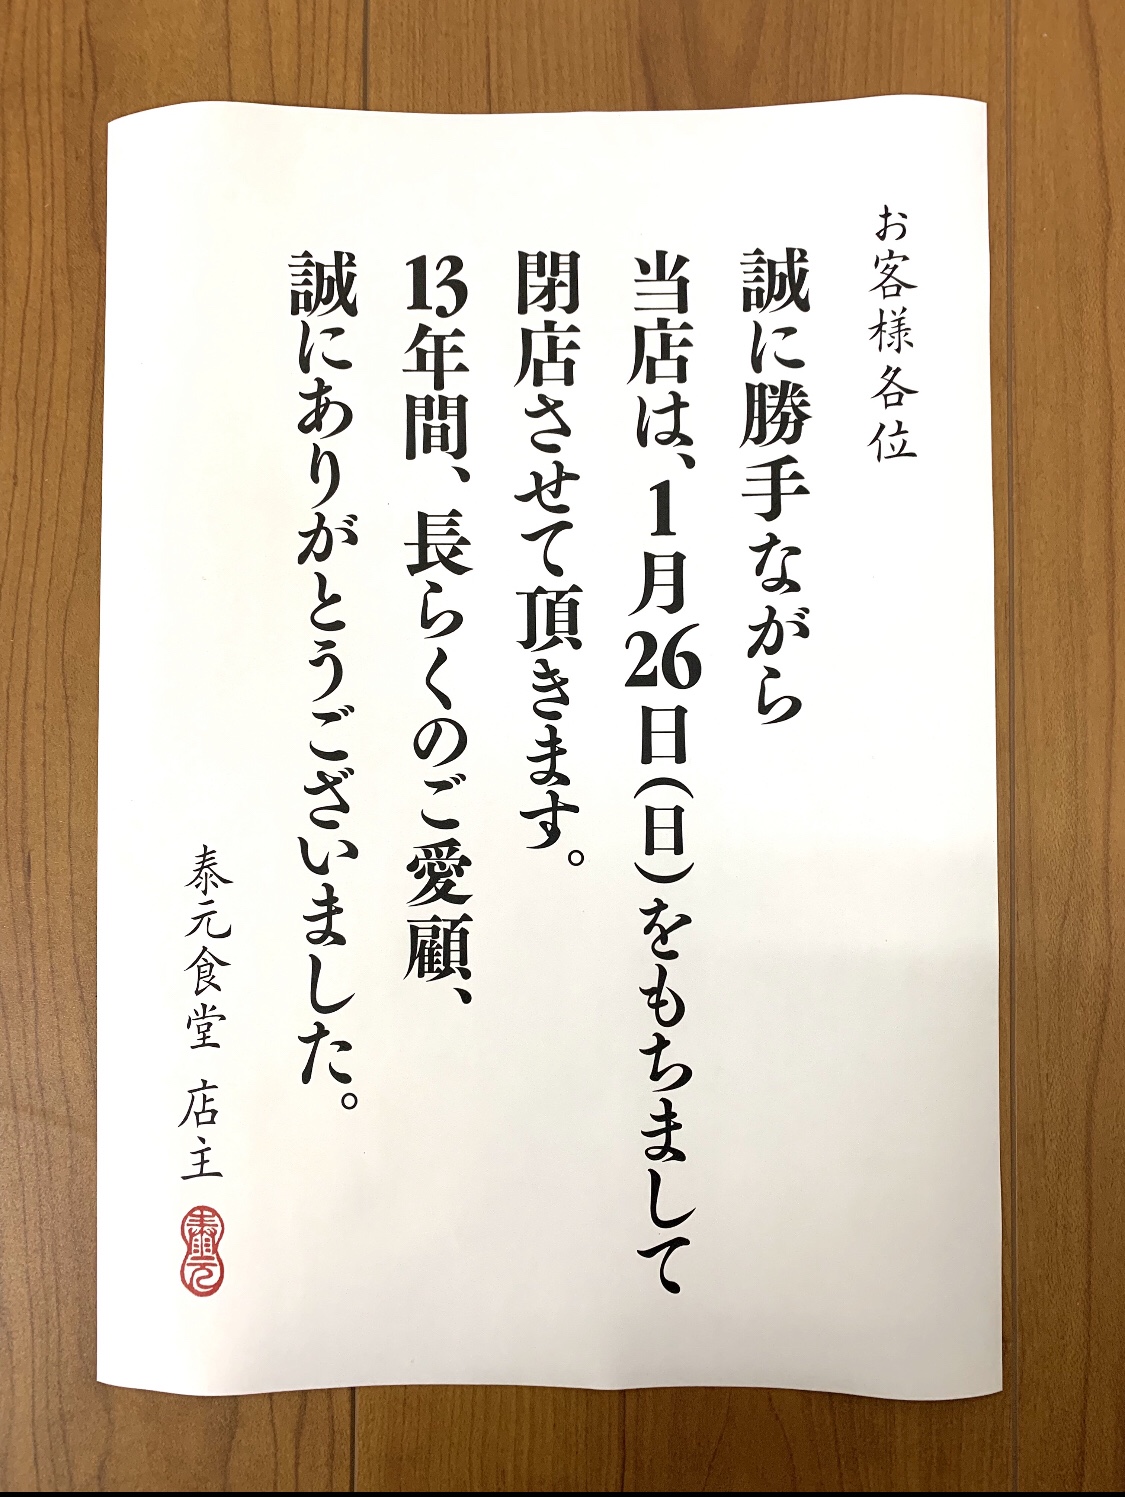 お客様各位
誠に勝手ながら
当店は、1月26日(日)をもちまして
閉店させて頂きます。
13年間、長らくのご愛顧、
誠にありがとうございました。
泰元食堂 店主
泰元